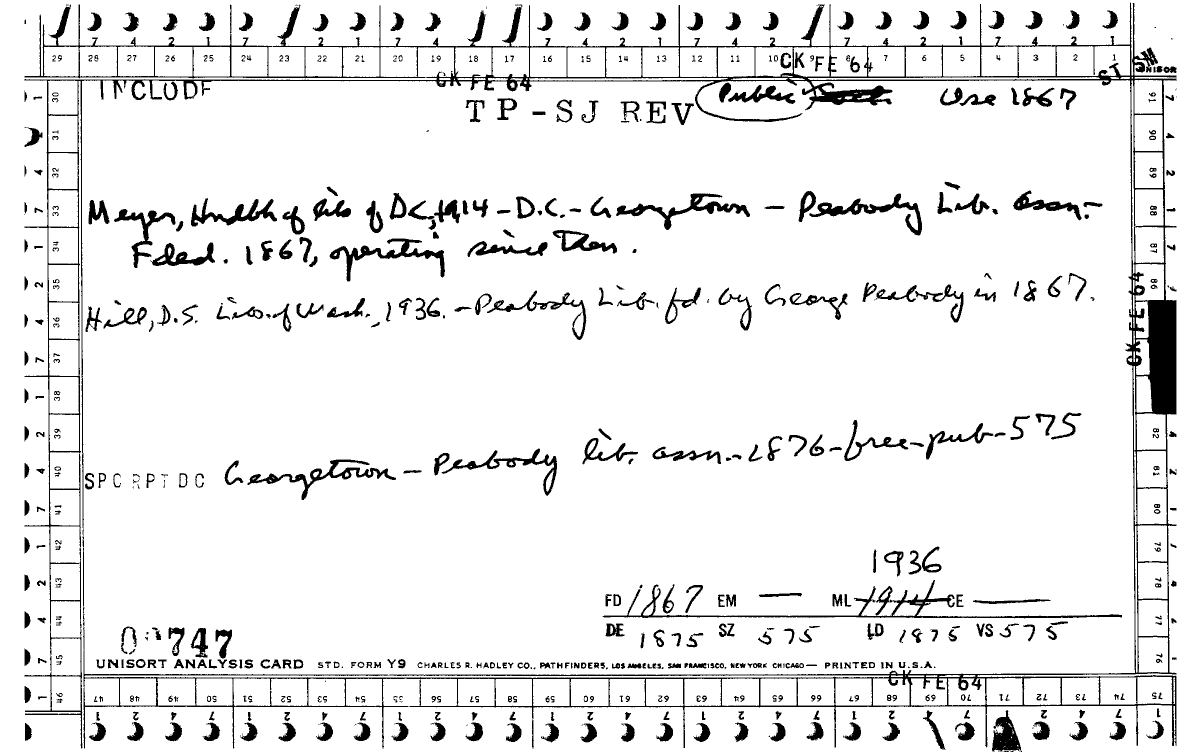 7 4 2 1 7 4 2 1 7 4 2 1 7 4 2 1 7 4 2 1 7 4 2 1 7 4 2 1
29 28 27 26 25 24 23 22 21 20 19 18 17 16 15 14 13 12 11 10 9 8 7 6 5 4 3 2 1
CK FE 64
CK FE 64
ST
UNISORT
INCLUDE
TP-SJ REV
Public
Use 1867
Meyer, Hndbk of libs of DC, 1914 - D.C. - Georgetown - Peabody Lib. assn. -
Fded. 1867, operating since then.
Hill, D.S. Libs. of Wash., 1936. - Peabody Lib. fd. by George Peabody in 1867.
CK FE 64
SPC RPT DC Georgetown - Peabody lib. assn. - 1876 - free - pub - 575
1936
FD 1867 EM — ML 1914 CE —
DE 1875 SZ 575 LD 1875 VS 575
747
UNISORT ANALYSIS CARD STD. FORM Y9 CHARLES R. HADLEY CO., PATHFINDERS, LOS ANGELES, SAN FRANCISCO, NEW YORK CHICAGO — PRINTED IN U.S.A.
CK FE 64
30 31 32 33 34 35 36 37 38 39 40 41 42 43 44 45 46
91 90 89 88 87 86 82 81 80 79 78 77 76
47 48 49 50 51 52 53 54 55 56 57 58 59 60 61 62 63 64 65 66 67 68 69 70 71 72 73 74 75